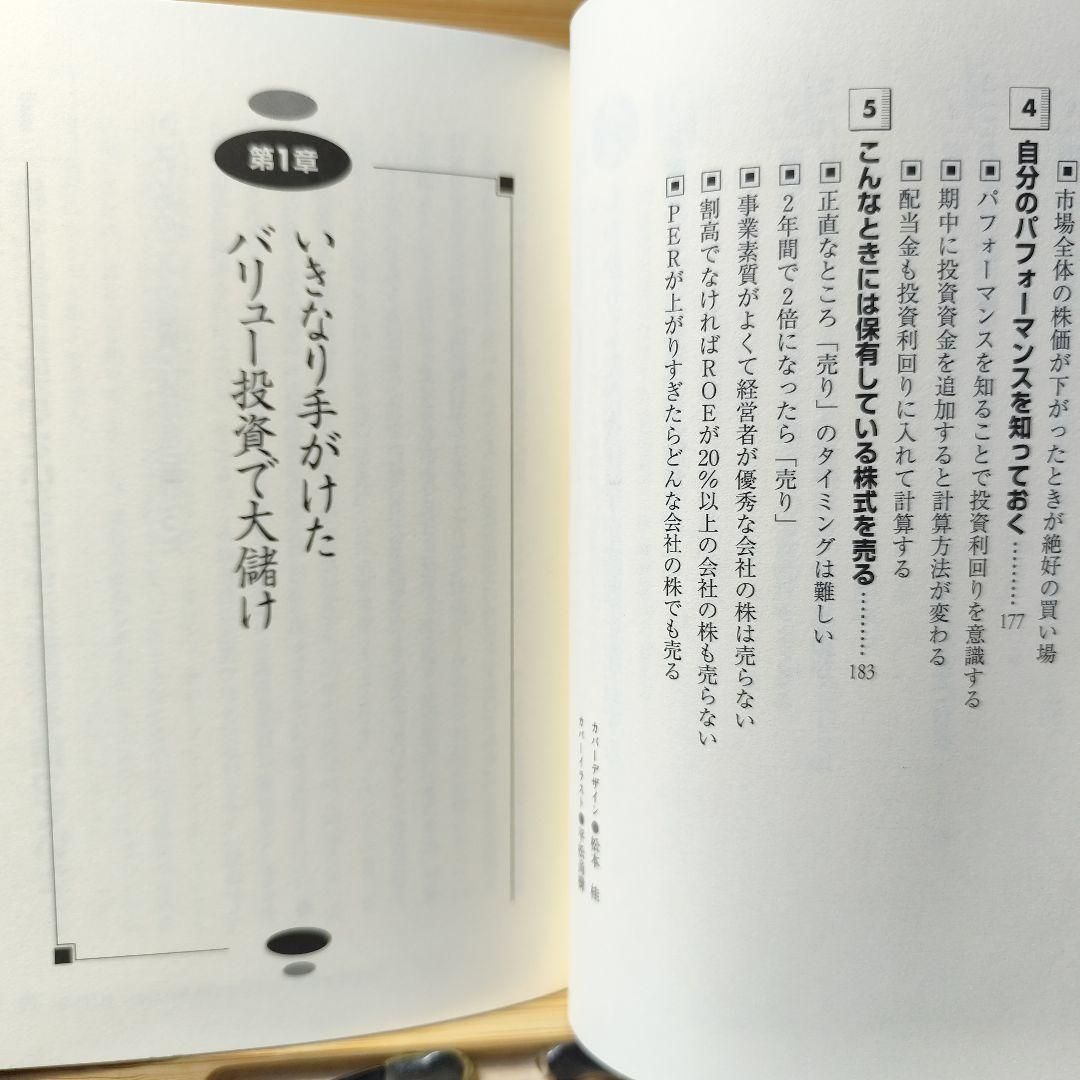 市場全体の株価が下がったときが絶好の買い場
4 自分のパフォーマンスを知っておく………177
パフォーマンスを知ることで投資利回りを意識する
期中に投資資金を追加すると計算方法が変わる
配当金も投資利回りに入れて計算する
5 こんなときには保有している株式を売る………183
正直なところ「売り」のタイミングは難しい
2年間で2倍になったら「売り」
事業素質がよくて経営者が優秀な会社の株は売らない
割高でなければROEが20%以上の会社の株も売らない
PERが上がりすぎたらどんな会社の株でも売る
カバーデザイン●松本 桂
カバーイラスト●平松
第1章
いきなり手がけた
バリュー投資で大儲け